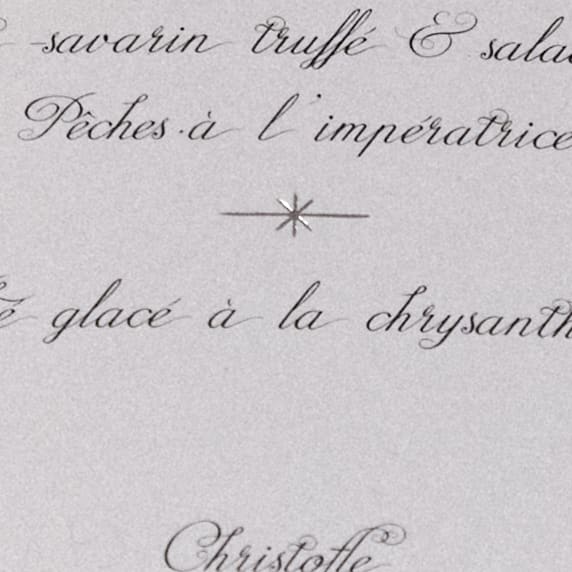 -savarin truffé & salad
Pêches à l'impératrice
glacé à la chrysanth
Christofle